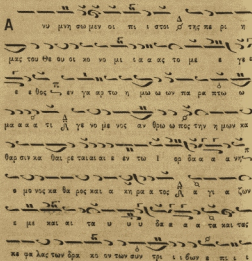 Α νυ μνη σω μεν οι πι στοι της πε ρι
μας του θε ου οι κο νο μι ι α ας το με ε γε
ε ε θος εν γα αρ τω η μω ων πα ρα πτω ω
μα α α τι γε νο με νος αν θρω ω πος την η μων κα
θαρ σιν κα θαι ρε ται αι αι ε εν τω ι ορ δα α α νη
ο μο νος κα θα ρος και α κη ρα τος α γι α ζων
ε με και αι τα υ υ υ δα α α τα και τας
κε φα λας των δρα κο ον των συν τρι ι βων ε πι ι